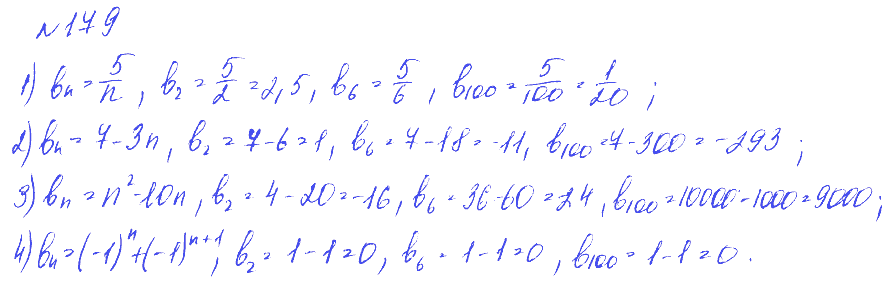 №179
1) bₙ = 5/n, b₂ = 5/2 = 2,5, b₆ = 5/6, b₁₀₀ = 5/100 = 1/20;
2) bₙ = 7-3n, b₂ = 7-6=1, b₆ = 7-18=-11, b₁₀₀=7-300=-293;
3) bₙ = n²-10n, b₂ = 4-20=-16, b₆ = 36-60=24, b₁₀₀=10000-1000=9000;
4) bₙ=(-1)ⁿ+(-1)ⁿ⁺¹, b₂ = 1-1=0, b₆ = 1-1=0, b₁₀₀=1-1=0.